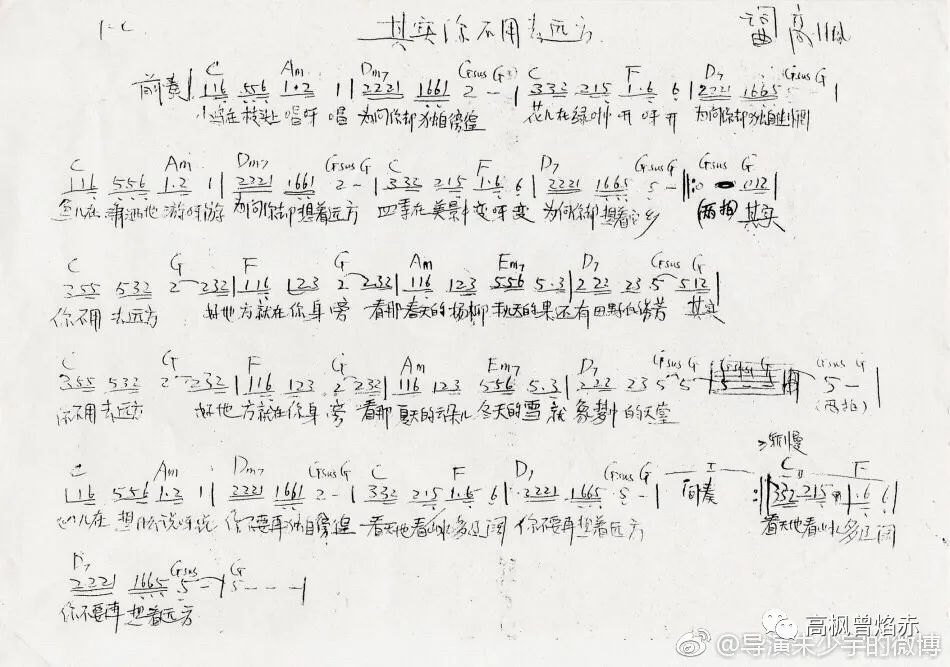 1=C 其实你不用去远方 词曲 高枫
C Am Dm7 Gsus G C F D7 Gsus G
前奏 116 556 1·2 1 | 2221 1661 2 - | 332 215 1·6 6 | 2221 1665 5 - |
小鸟在枝头上唱呀唱 为何你却独自彷徨 花儿在绿叶中开呀开 为何你却独自惆怅
C Am Dm7 Gsus G C F D7 Gsus G Gsus G
116 556 1·2 1 | 2221 1661 2 - | 332 215 1·6 6 | 2221 1665 5 - |: 0 012 |
鱼儿在潇洒地游呀游 为何你却想着远方 四季在美景中变呀变 为何你却想着它乡 (两拍) 其实
C G F G Am Em7 D7 Gsus G
355 532 2 232 | 116 123 2 232 | 116 123 556 5·3 | 222 23 5 512 |
你不用去远方 好地方就在你身旁 看那春天的杨柳秋天的果还有田野的芬芳 其实
C G F G Am Em7 D7 Gsus G Gsus G Gsus G
355 532 2 232 | 116 123 2 232 | 116 123 556 5·3 | 222 23 5 5 5 - |
你不用去远方 好地方就在你身旁 看那夏天的云朵儿冬天的雪就象梦中的天堂 (两拍)
渐慢
C Am Dm7 Gsus G C F D7 Gsus G C F
116 556 1·2 1 | 2221 1661 2 - | 332 215 1·6 6 | 2221 1665 5 - | 间奏 :| 332 215 1·6 6 |
在想 说呀说 你不要再独自彷徨 看天地看山水多辽阔 你不要再想着远方 看天地看山水多辽阔
D7 Gsus G
2221 1665 5 - | 5 - - - |
你不要再想着远方
高枫曾焰赤
@导演朱少宇的微博